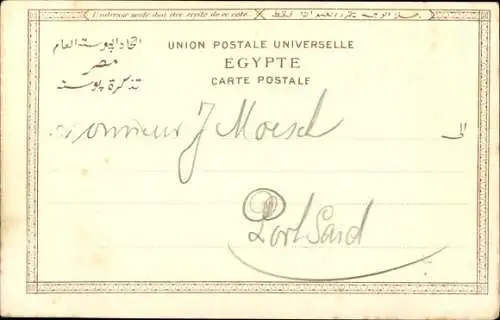 L'adresse seule doit être écrite de ce côté.
اتحاد البوسته العام
مصر
تذكرة بوسته
UNION POSTALE UNIVERSELLE
EGYPTE
CARTE POSTALE
الى
Monsieur J Mosch
Port Said